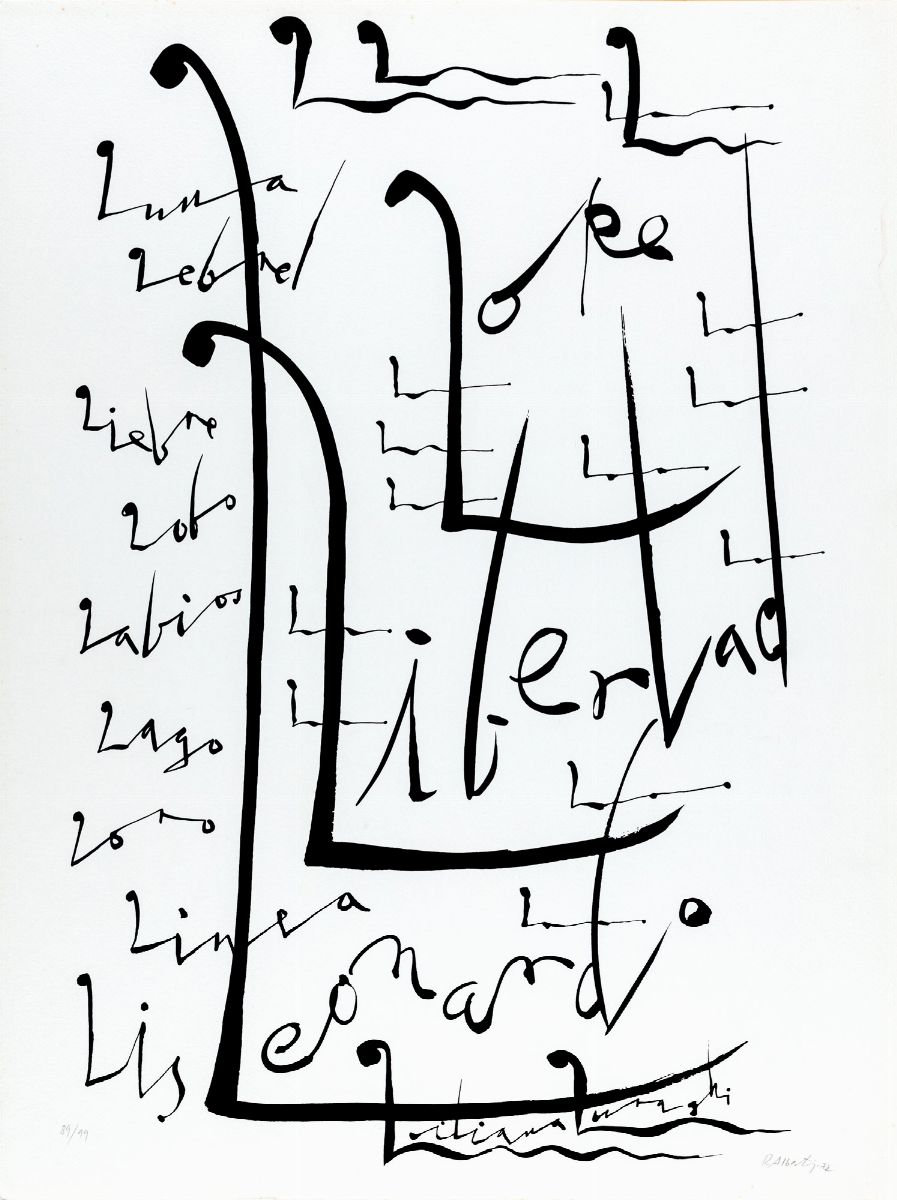 Luna
Lebrel
Lope
Liebre
Lobo
Labios
Libertad
Lago
Loro
Linea
Leonardo
Lis
Liliana Luraghi
89/99
R. Alberti 72